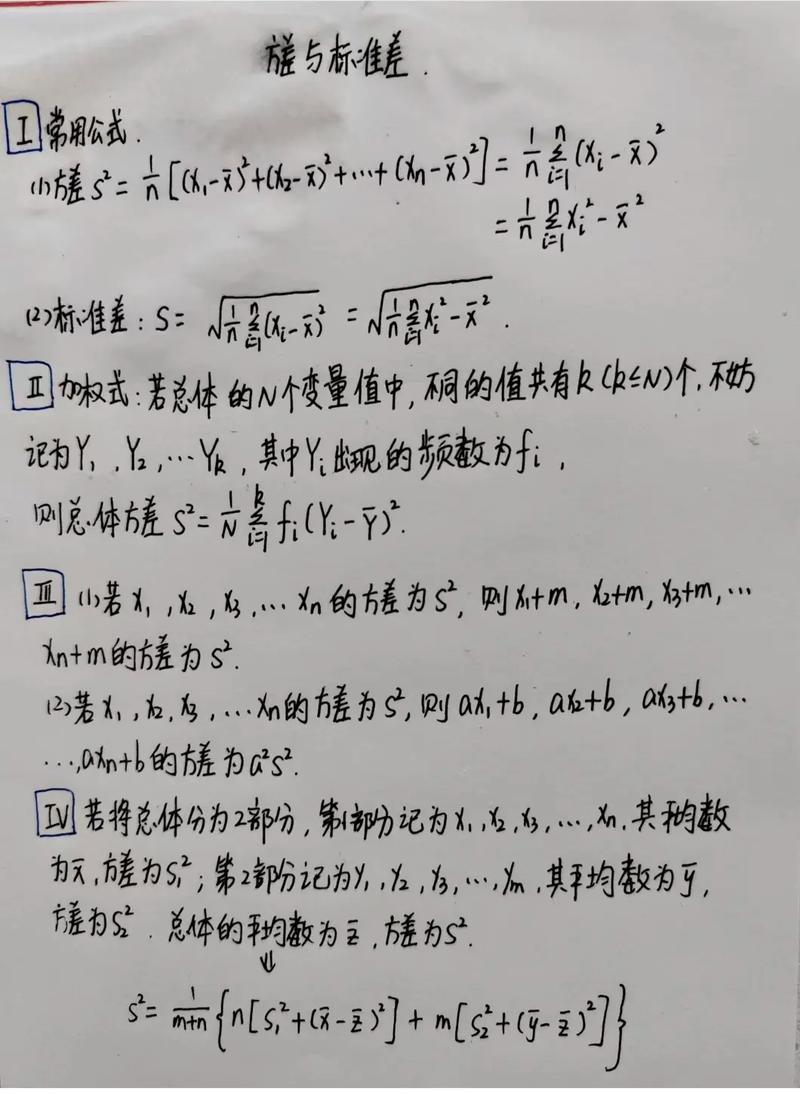 方差与标准差.
Ⅰ 常用公式.
(1)方差 S² = 1/n [(x₁-x̄)²+(x₂-x̄)²+…+(xₙ-x̄)²] = 1/n ∑ᵢ₌₁ⁿ (xᵢ-x̄)²
= 1/n ∑ᵢ₌₁ⁿ xᵢ² - x̄²
(2)标准差: S = √(1/n ∑ᵢ₌₁ⁿ (xᵢ-x̄)²) = √(1/n ∑ᵢ₌₁ⁿ xᵢ² - x̄²).
Ⅱ 加权式:若总体的N个变量值中,不同的值共有k(k≤N)个,不妨
记为Y₁,Y₂,…Yₖ,其中Yᵢ出现的频数为fᵢ,
则总体方差 S² = 1/N ∑ᵢ₌₁ᵏ fᵢ(Yᵢ-Ȳ)².
Ⅲ (1)若x₁,x₂,x₃,…xₙ的方差为S²,则x₁+m,x₂+m,x₃+m,…
xₙ+m的方差为S².
(2)若x₁,x₂,x₃,…xₙ的方差为S²,则ax₁+b,ax₂+b,ax₃+b,…
…,axₙ+b的方差为a²S².
Ⅳ 若将总体分为2部分,第1部分记为x₁,x₂,x₃,…,xₙ,其平均数
为x̄,方差为S₁²;第2部分记为y₁,y₂,y₃,…,yₘ,其平均数为ȳ,
方差为S₂².总体的平均数为z̄,方差为S².
⇓
S² = 1/(m+n) {n[S₁²+(x̄-z̄)²] + m[S₂²+(ȳ-z̄)²]}